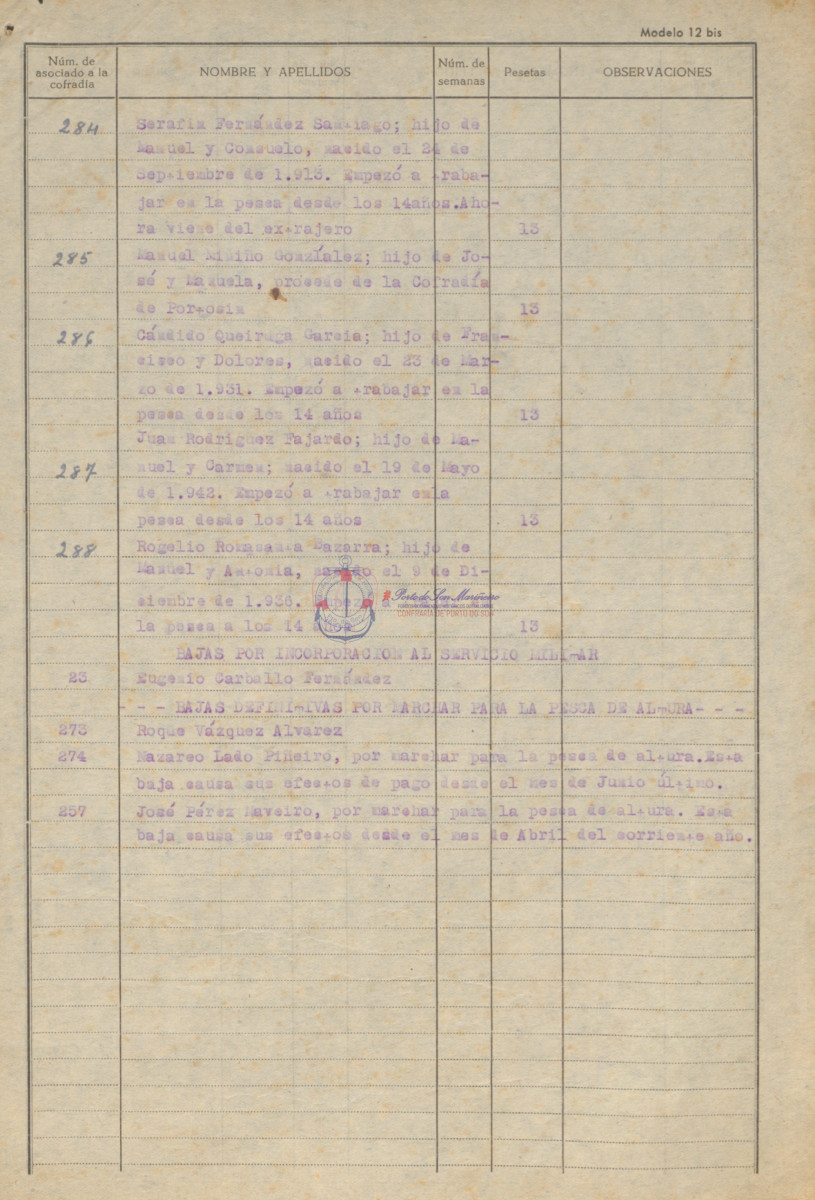 Modelo 12 bis
Núm. de asociado a la cofradía NOMBRE Y APELLIDOS Núm. de semanas Pesetas OBSERVACIONES
284 Serafin Fernández Santiago; hijo de
Manuel y Consuelo, nacido el 24 de
Septiembre de 1.913. Empezó a traba-
jar en la pesca desde los 14años.Aho-
ra viene del extrajero 13
285 Manuel Miniño Gonzíalez; hijo de Jo-
sé y Manuela, procede de la Cofradía
de Portosin 13
286 Cándido Queiruga Garcia; hijo de Fran-
cisco y Dolores, nacido el 23 de Mar-
zo de 1.931. Empezó a trabajar en la
pesca desde los 14 años 13
Juan Rodriguez Fajardo; hijo de Ma-
287 nuel y Carmen; nacido el 19 de Mayo
de 1.942. Empezó a trabajar enla
pesca desde los 14 años 13
288 Rogelio Romasanta Bazarra; hijo de
Manuel y Antonia, nacido el 9 de Di-
ciembre de 1.936. Empezó a
la pesca a los 14 años 13
Porto do Son Mariñeiro
CONFRARÍA DE PORTO DO SON
BAJAS POR INCORPORACION AL SERVICIO MILITAR
23 Eugenio Carballo Fernández
- - - BAJAS DEFINITIVAS POR MARCHAR PARA LA PESCA DE ALTURA- - -
273 Roque Vázquez Alvarez
274 Nazareo Lado Piñeiro, por marchar para la pesca de altura.Esta
baja causa sus efectos de pago desde el mes de Junio último.
257 José Pérez Maveiro, por marchar para la pesca de altura. Esta
baja causa sus efectos desde el mes de Abril del corriente año.